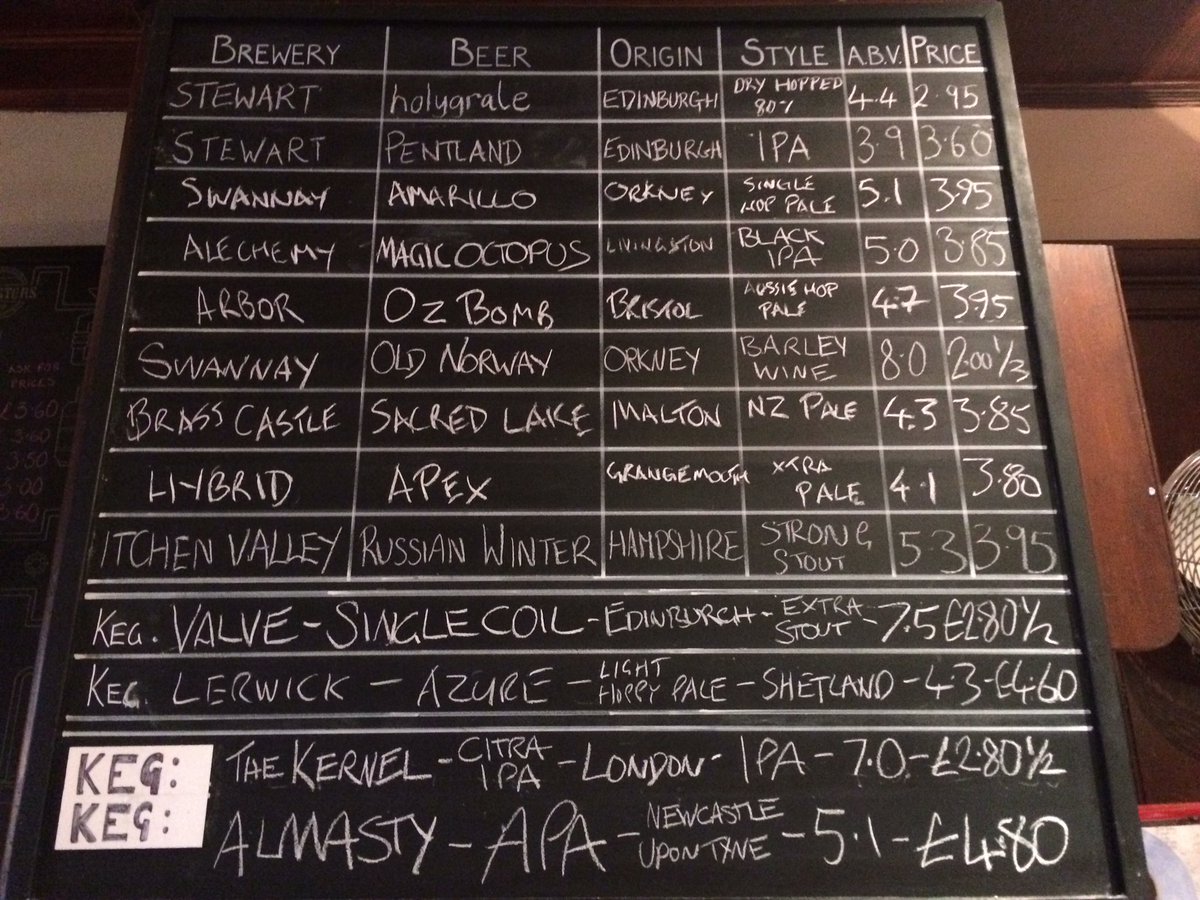 BREWERY BEER ORIGIN STYLE A.B.V. PRICE
STEWART holygrale EDINBURGH DRY HOPPED 80% 4.4 2.95
STEWART PENTLAND EDINBURGH IPA 3.9 3.60
SWANNAY AMARILLO ORKNEY SINGLE HOP PALE 5.1 3.95
ALECHEMY MAGIC OCTOPUS LIVINGSTON BLACK IPA 5.0 3.85
ARBOR OZ BOMB BRISTOL AUSSIE HOP PALE 4.7 3.95
SWANNAY OLD NORWAY ORKNEY BARLEY WINE 8.0 2.00 1/3
BRASS CASTLE SACRED LAKE MALTON NZ PALE 4.3 3.85
HYBRID APEX GRANGEMOUTH XTRA PALE 4.1 3.80
ITCHEN VALLEY RUSSIAN WINTER HAMPSHIRE STRONG STOUT 5.3 3.95
KEG. VALVE - SINGLE COIL - EDINBURGH - EXTRA STOUT - 7.5 £2.80 1/2
KEG. LERWICK - AZURE - LIGHT HOPPY PALE - SHETLAND - 4.3 - £4.60
KEG: THE KERNEL - CITRA IPA - LONDON - IPA - 7.0 - £2.80 1/2
KEG: ALMASTY - APA - NEWCASTLE UPON TYNE - 5.1 - £4.80
ASK FOR
PRICES
£3.60
3.60
3.50
3.00
3.60